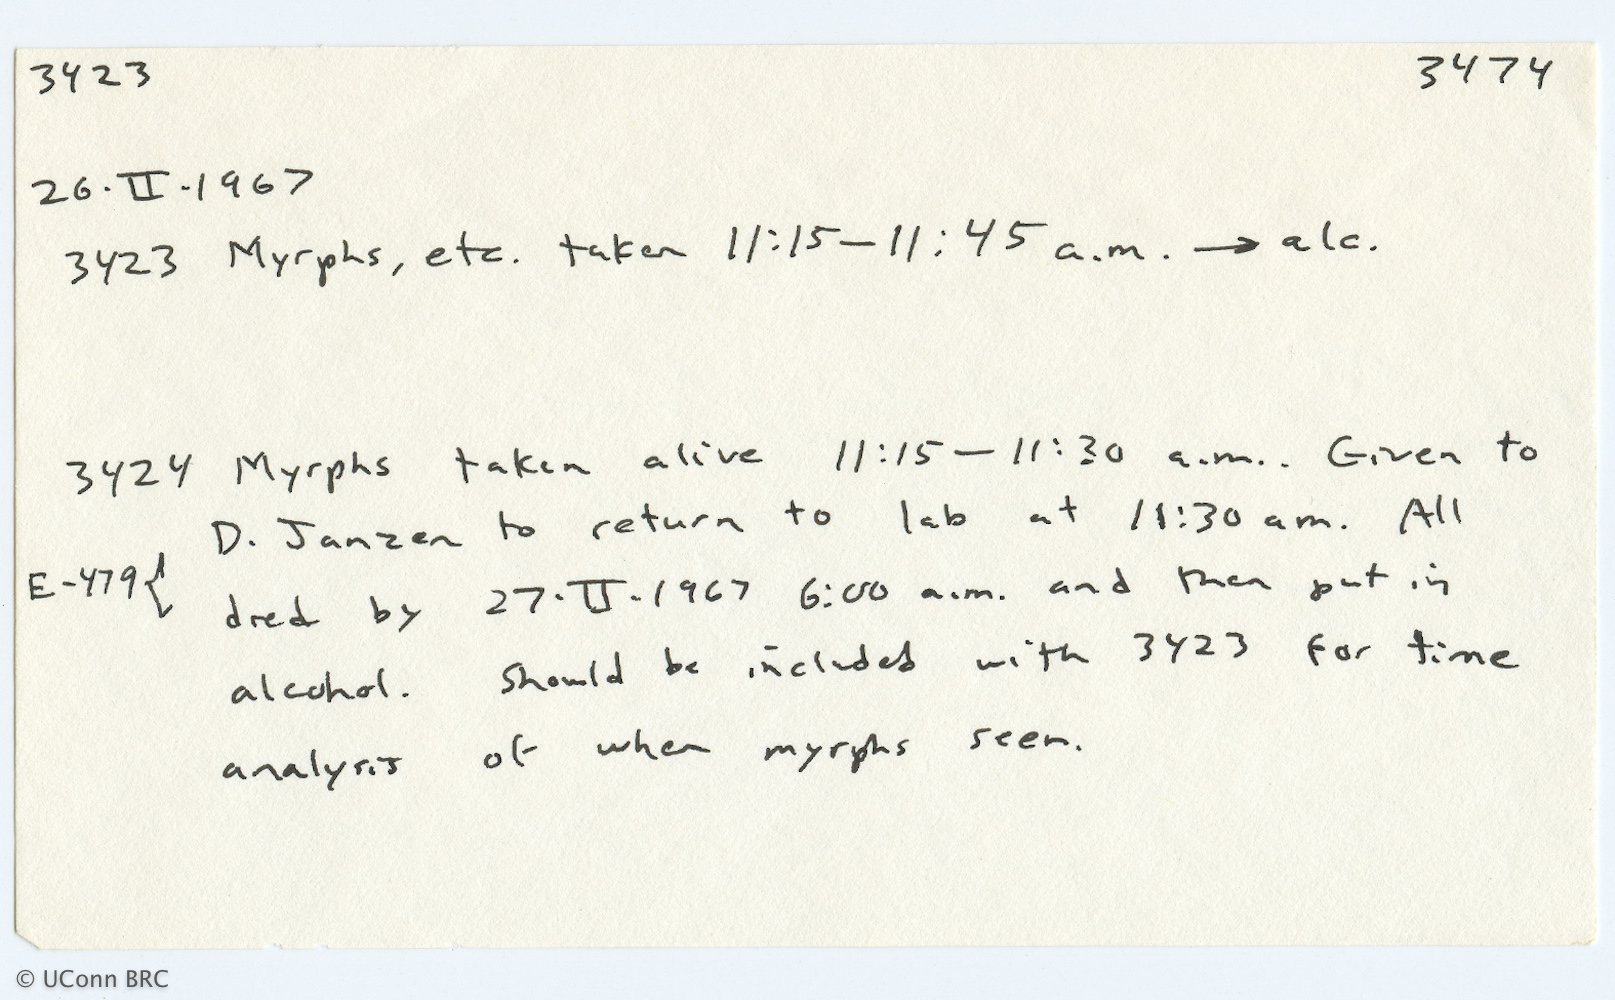 3423 3474
26.II.1967
3423 Myrphs, etc. taken 11:15–11:45 a.m. → alc.
3424 Myrphs taken alive 11:15–11:30 a.m.. Given to
D. Janzen to return to lab at 11:30 am. All
E-479{ died by 27.II.1967 6:00 a.m. and then put in
alcohol. Should be included with 3423 for time
analysis of when myrphs seen.
© UConn BRC